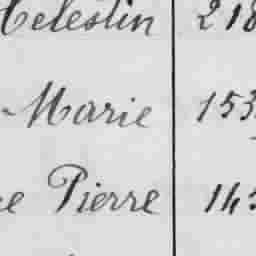 Celestin 218
-Marie 153
Pierre 145